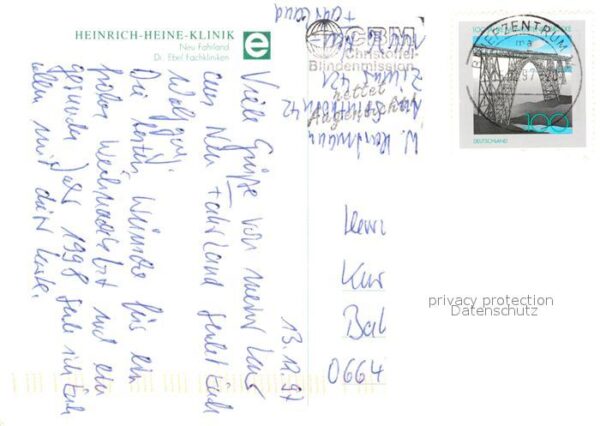 HEINRICH-HEINE-KLINIK
Neu Fahrland
Dr. Ebel Fachkliniken
e
CBM
Christoffel-
Blindenmission
rettet
Augenlicht
BRIEFZENTRUM
97
100
DEUTSCHLAND
13.12.97
Viele Grüße von meiner Kur
aus Neu Fahrland sendet Euch
Wolfgang.
Die besten Wünsche für ein
frohes Weihnachtsfest und ein
gesundes Jahr 1998 sende ich Euch
allen mit dieser Karte.
W.
42
Fahrland
Herr
Kur
Bal
0664
privacy protection
Datenschutz